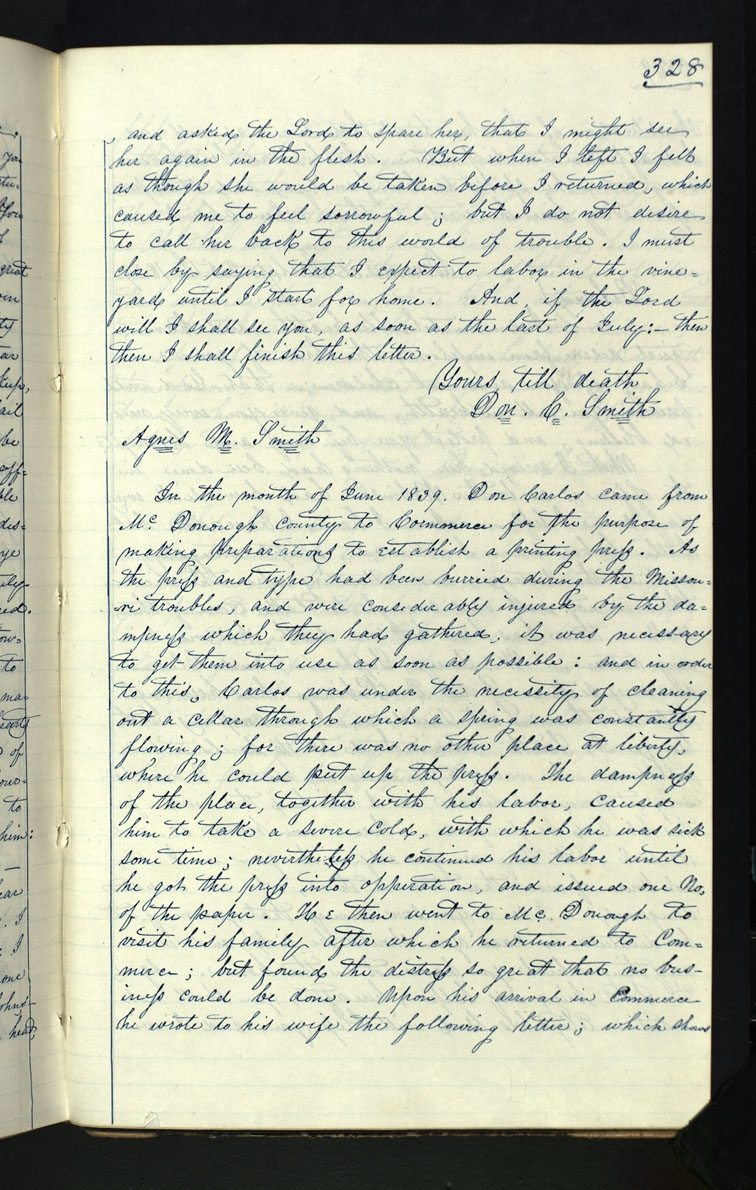 328
and asked the Lord to spare her, that I might see
her again in the flesh. But when I left I felt
as though she would be taken before I returned, which
caused me to feel sorrowful; but I do not desire
to call her back to this world of trouble. I must
close by saying that I expect to labor in the vine=
yard until I start for home. And, if the Lord
will I shall see you, as soon as the last of July:— then
then I shall finish this letter.
Yours till death
Don. C. Smith
Agnes M. Smith
In the month of June 1839. Don Carlos came from
Mc. Donough county to Commerce for the purpose of
making preparations to establish a printing press. As
the press and type had been burried during the Missou=
ri troubles, and were considerably injured by the da=
mpness which they had gathered, it was necessary
to get them into use as soon as possible: and in order
to this, Carlos was under the necessity of cleaning
out a cellar through which a spring was constantly
flowing; for there was no other place at liberty,
where he could put up the press. The dampness
of the place, together with his labor, caused
him to take a severe cold, with which he was sick
some time; nevertheless he continued his labor until
he got the press into opperation, and issued one No.
of the paper. He then went to Mc. Donough to
visit his family after which he returned to Com=
merce; but found the distress so great that no bus=
iness could be done. Upon his arrival in Commerce
he wrote to his wife the following letter; which shows